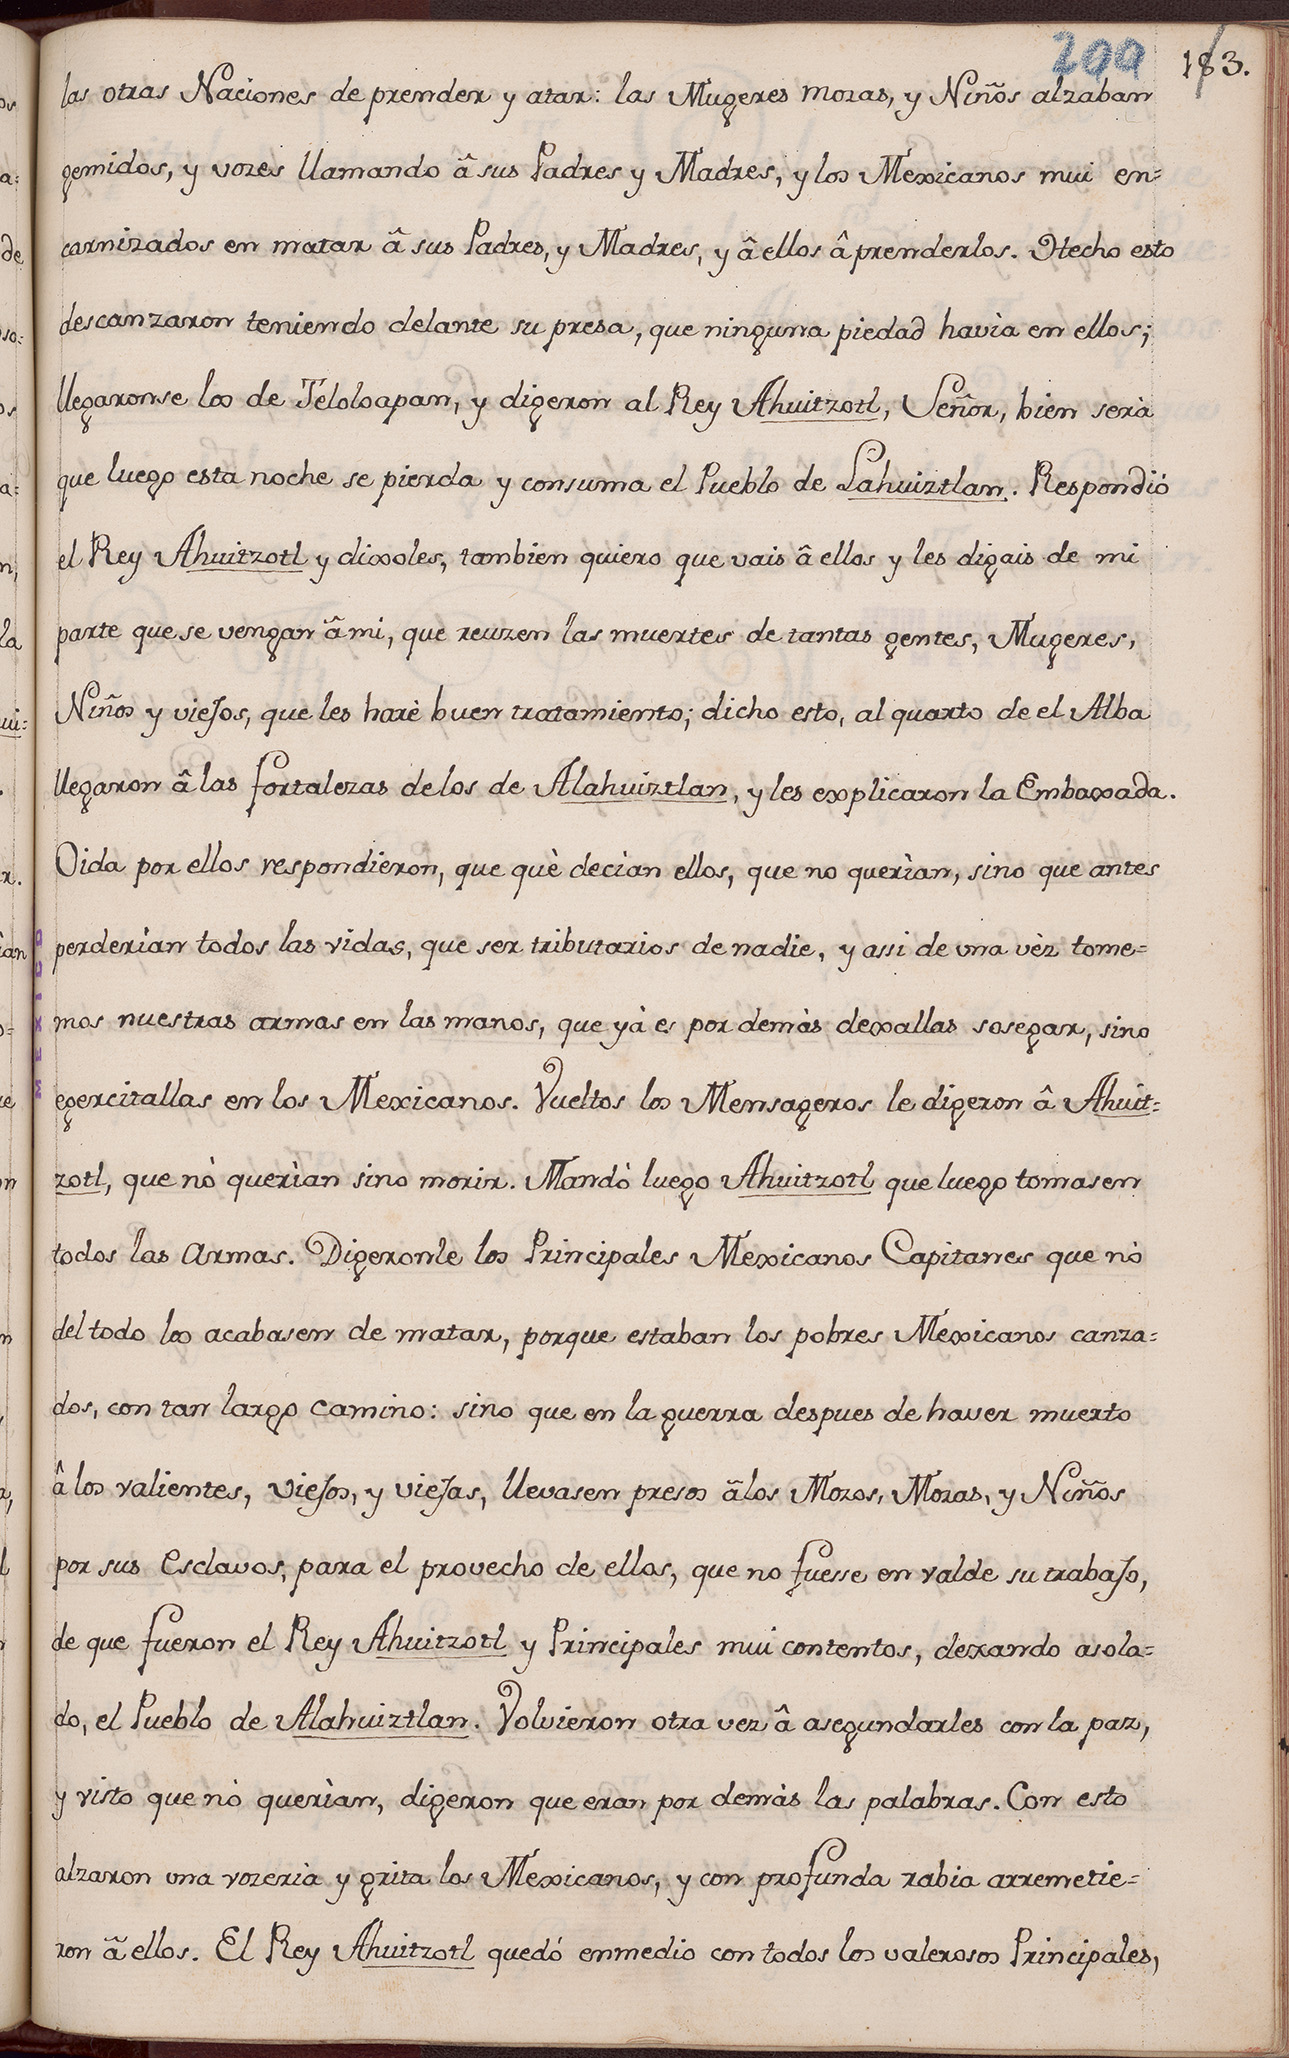 200 183.
las otras Naciones de prender y atar: las Mugeres mozas, y Niños alzaban
gemidos, y vozes llamando â sus Padres y Madres, y los Mexicanos mui en=
carnizados en matar â sus Padres, y Madres, y â ellos â prenderlos. Hecho esto
descanzaron teniendo delante su presa, que ninguna piedad havìa en ellos;
llegaronse los de Teloloapam, y digeron al Rey Ahuitzotl, Señor, bien serà
que luego esta noche se pierda y consuma el Pueblo de Lahuiztlan. Respondiò
el Rey Ahuitzotl y dixoles, tambien quiero que vais â ellos y les digais de mi
parte que se vengan â mi, que reuzen las muertes de tantas gentes, Mugeres,
Niños y viejos, que les harè buen tratamiento; dicho esto, al quarto de el Alba
llegaron â las fortalezas de los de Alahuiztlan, y les explicaron la Embaxada.
Oida por ellos respondieron, que què decìan ellos, que no querìan, sino que antes
perderìan todos las vidas, que ser tributarios de nadie, y assi de una vèz tome=
mos nuestras armas en las manos, que yà es por demàs dexallas sosegar, sino
egercitallas en los Mexicanos. Vueltos los Mensageros le digeron â Ahuit=
zotl, que nò querìan sino morir. Mandò luego Ahuitzotl que luego tomasen
todos las Armas. Digeronle los Principales Mexicanos Capitanes que nò
del todo los acabasen de matar, porque estaban los pobres Mexicanos canza=
dos, con tan largo camino: sino que en la guerra despues de haver muerto
â los valientes, viejos, y viejas, llevasen presos â los Mozos, Mozas, y Niños
por sus Esclavos, para el provecho de ellos, que no fuesse en valde su trabajo,
de que fueron el Rey Ahuitzotl y Principales mui contentos, dexando asola=
do, el Pueblo de Alahuiztlan. Volvieron otra vez â asegundarles con la paz,
y visto que nò querìan, digeron que eran por demàs las palabras. Con esto
alzaron una vozerìa y grita los Mexicanos, y con profunda rabia arremetie=
ron â ellos. El Rey Ahuitzotl quedó enmedio con todos los valerosos Principales,
MEXICO